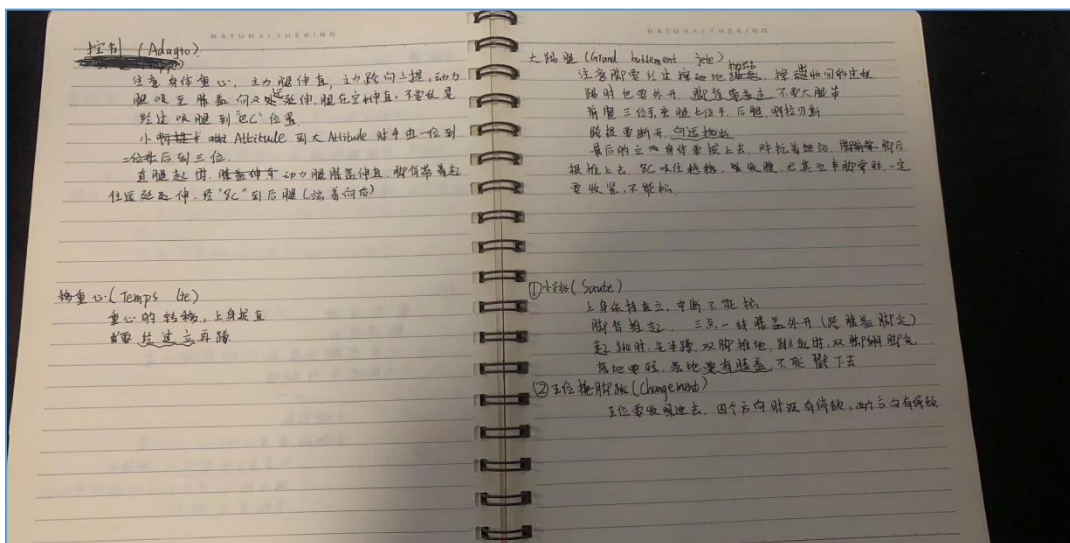 NATURALTHEKING
控制 (Adagio)
注意身体重心，主力腿伸直，主力跨向上提，动力
腿吸至膝盖向又处延伸，腿在空中伸直，不要仅是
经过吸腿到"吧C"位置
小 Attitude 到大 Attitude 时手由一位到
二位最后到三位
直腿起时，动力腿膝盖伸直，脚背带着起
往远延起伸，经"8C"到后腿(端着向后)
移重心(Temps lie)
重心的转移，上身拔直
要经过立再蹲
NATURALTHEKING
大踢腿 (Grand battement jete)
注意脚要经过擦地，擦地收回的过程
踢时也要外开，不要大腿带
前腿三位手，旁腿七位手，后腿，啊拉贝斯
胯根要断开，向远抛出
最后的立身体重拔上去，对抗着地动，脚后
根推上去，8C吸住稳稳，要收腹，尤其立半脚掌时，一定
要收紧，不能松
①小跳(Saute)
上身保持直立，中断不能松
脚背推起，三点一线膝盖外开(跨膝盖脚尖)
起跳时，先半蹲，双脚推地，跳起时，双脚绷脚尖
落地要轻，落地要有膝盖，不能戳下去
②五位换脚跳(Changement)
五位要收回进去，四个方向时没有停顿，两个方向有停顿